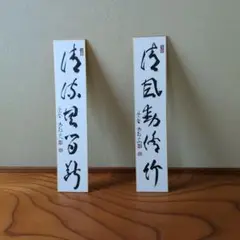 清風動脩竹
清流無間断